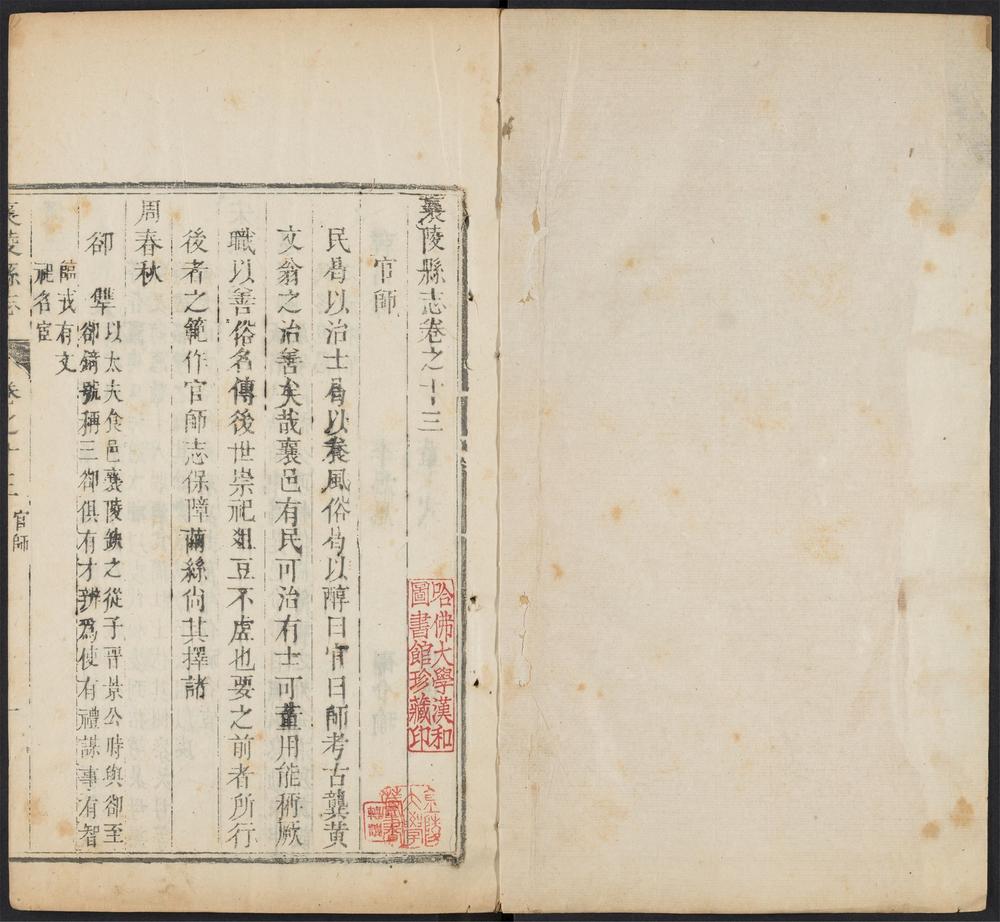 襄陵縣志卷之十三
官師
民曷以治士曷以養風俗曷以醇曰官曰師考古龔黃
文翁之治善矣哉襄邑有民可治有士可董用能稱厥
職以善俗名傳後世崇祀俎豆不虛也要之前者所行
後者之範作官師志保障繭絲尙其擇諸
周春秋
郤犨以大夫食邑襄陵缺之從子晉景公時與郤至
郤錡號稱三郤俱有才辨爲使有禮謀事有智
臨戎有文
祀名宦
襄陵縣志 卷之十三 官師 一
哈佛大學漢和
圖書館珍藏印